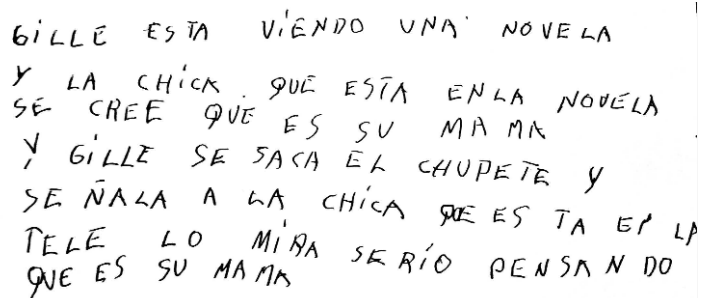 GiLLE ESTA ViENDO UNA NOVELA
Y LA CHiCA QUE ESTA ENLA NOVELA
SE CREE QUE ES SU MAMA
Y GiLLE SE SACA EL CHUPETE Y
SEÑALA A LA CHiCA QUE ESTA EN LA
TELE LO MiRA SERiO PENSANDO
QUE ES SU MAMA